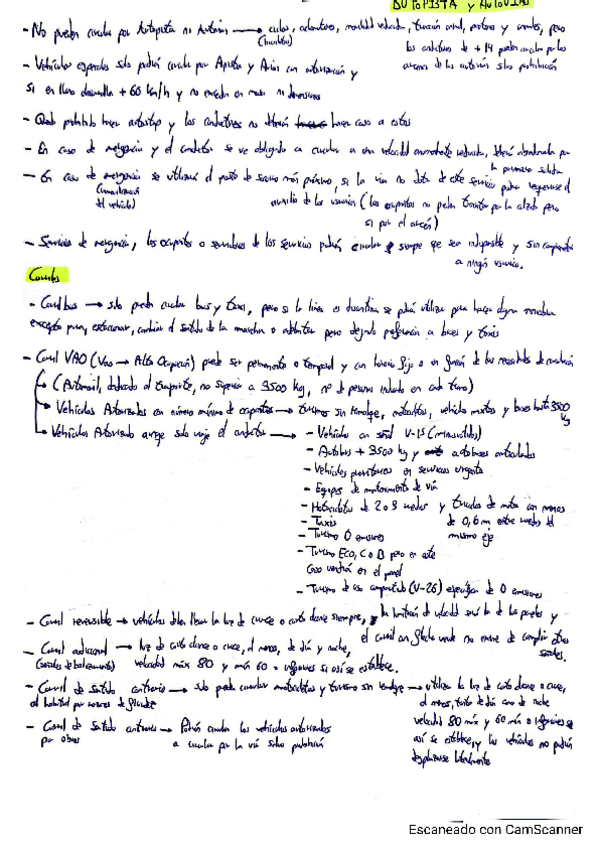 AUTOPISTA y AUTOVÍAS
- No pueden circular por Autopista ni Autovía → ciclos, ciclomotores, movilidad reducida, tracción animal, peatones y animales, pero
los conductores de + 14 pueden circular por los
arcenes de las autovías salvo prohibición
- Vehículos especiales solo podrán circular por Apista y Avías con autorización y
si en llano desarrollan + 60 km/h y no exceden en masa ni dimensiones
- Queda prohibido hacer autostop y los conductores no deberán hacer caso a estos
- En caso de emergencia y el conductor se ve obligado a circular a una velocidad anormalmente reducida, deberá abandonarla por
la primera salida
- En caso de emergencia se utilizará el poste de socorro más próximo, si la vía no dota de este servicio podrá requerirse el
(inmovilización
del vehículo)
auxilio de los usuarios (los ocupantes no pueden transitar por la calzada pero
si por el arcén)
- Servicios de emergencia, los ocupantes o servidores de los servicios podrán circular siempre que sea indispensable y sin comprometer
a ningún usuario.
Carriles
- Carril bus → solo pueden circular bus y taxis, pero si la línea es discontinua se podrá utilizar para hacer alguna maniobra
excepto parar, estacionar, cambiar el sentido de la marcha o adelantar pero dejando preferencia a buses y taxis
- Carril VAO (Vao → Alta Ocupación) puede ser permanente o temporal y con horario fijo o en función de las necesidades de circulación
(Automóvil, dedicado al transporte, no superior a 3500 kg, nº de personas indicado en cada tramo)
Vehículos Autorizados con número mínimo de ocupantes → Turismos sin remolque, motocicletas, vehículos mixtos y buses hasta 3500 kg
Vehículos Autorizado aunque solo viaje el conductor → - Vehículos con señal V-15 (minusválidos)
- Autobús + 3500 kg y autobuses articulados
- Vehículos prioritarios en servicios urgentes
- Equipos de mantenimiento de vía
- Motocicletas de 2 o 3 ruedas y triciclos de motor con menos
de 0,6 m entre ruedas del
mismo eje
- Taxis
- Turismo 0 emisiones
- Turismo ECO, C o B pero en este
caso vendrá en el panel
- Turismo de uso compartido (V-26) específica de 0 emisiones
- Carril reversible → vehículos deben llevar la luz de cruce o corto alcance siempre, la limitación de velocidad será la de los paneles y
el carril con flecha verde no exime de cumplir otras
señales.
- Carril adicional → luz de corto alcance o cruce, al menos, de día y noche,
(conos de balizamiento) velocidad máx 80 y mín 60 o inferiores si así se establece.
- Carril de Sentido contrario → solo puede circular motocicletas y turismo sin remolque → utilizar la luz de corto alcance o cruce,
al habitual por razones de fluidez
al menos, tanto de día como de noche
velocidad 80 máx y 60 mín o inferiores si
así se establece, y los vehículos no podrán
desplazarse lateralmente
- Carril de Sentido contrario → Podrán circular los vehículos autorizados
por obras a circular por la vía salvo prohibición
Escaneado con CamScanner